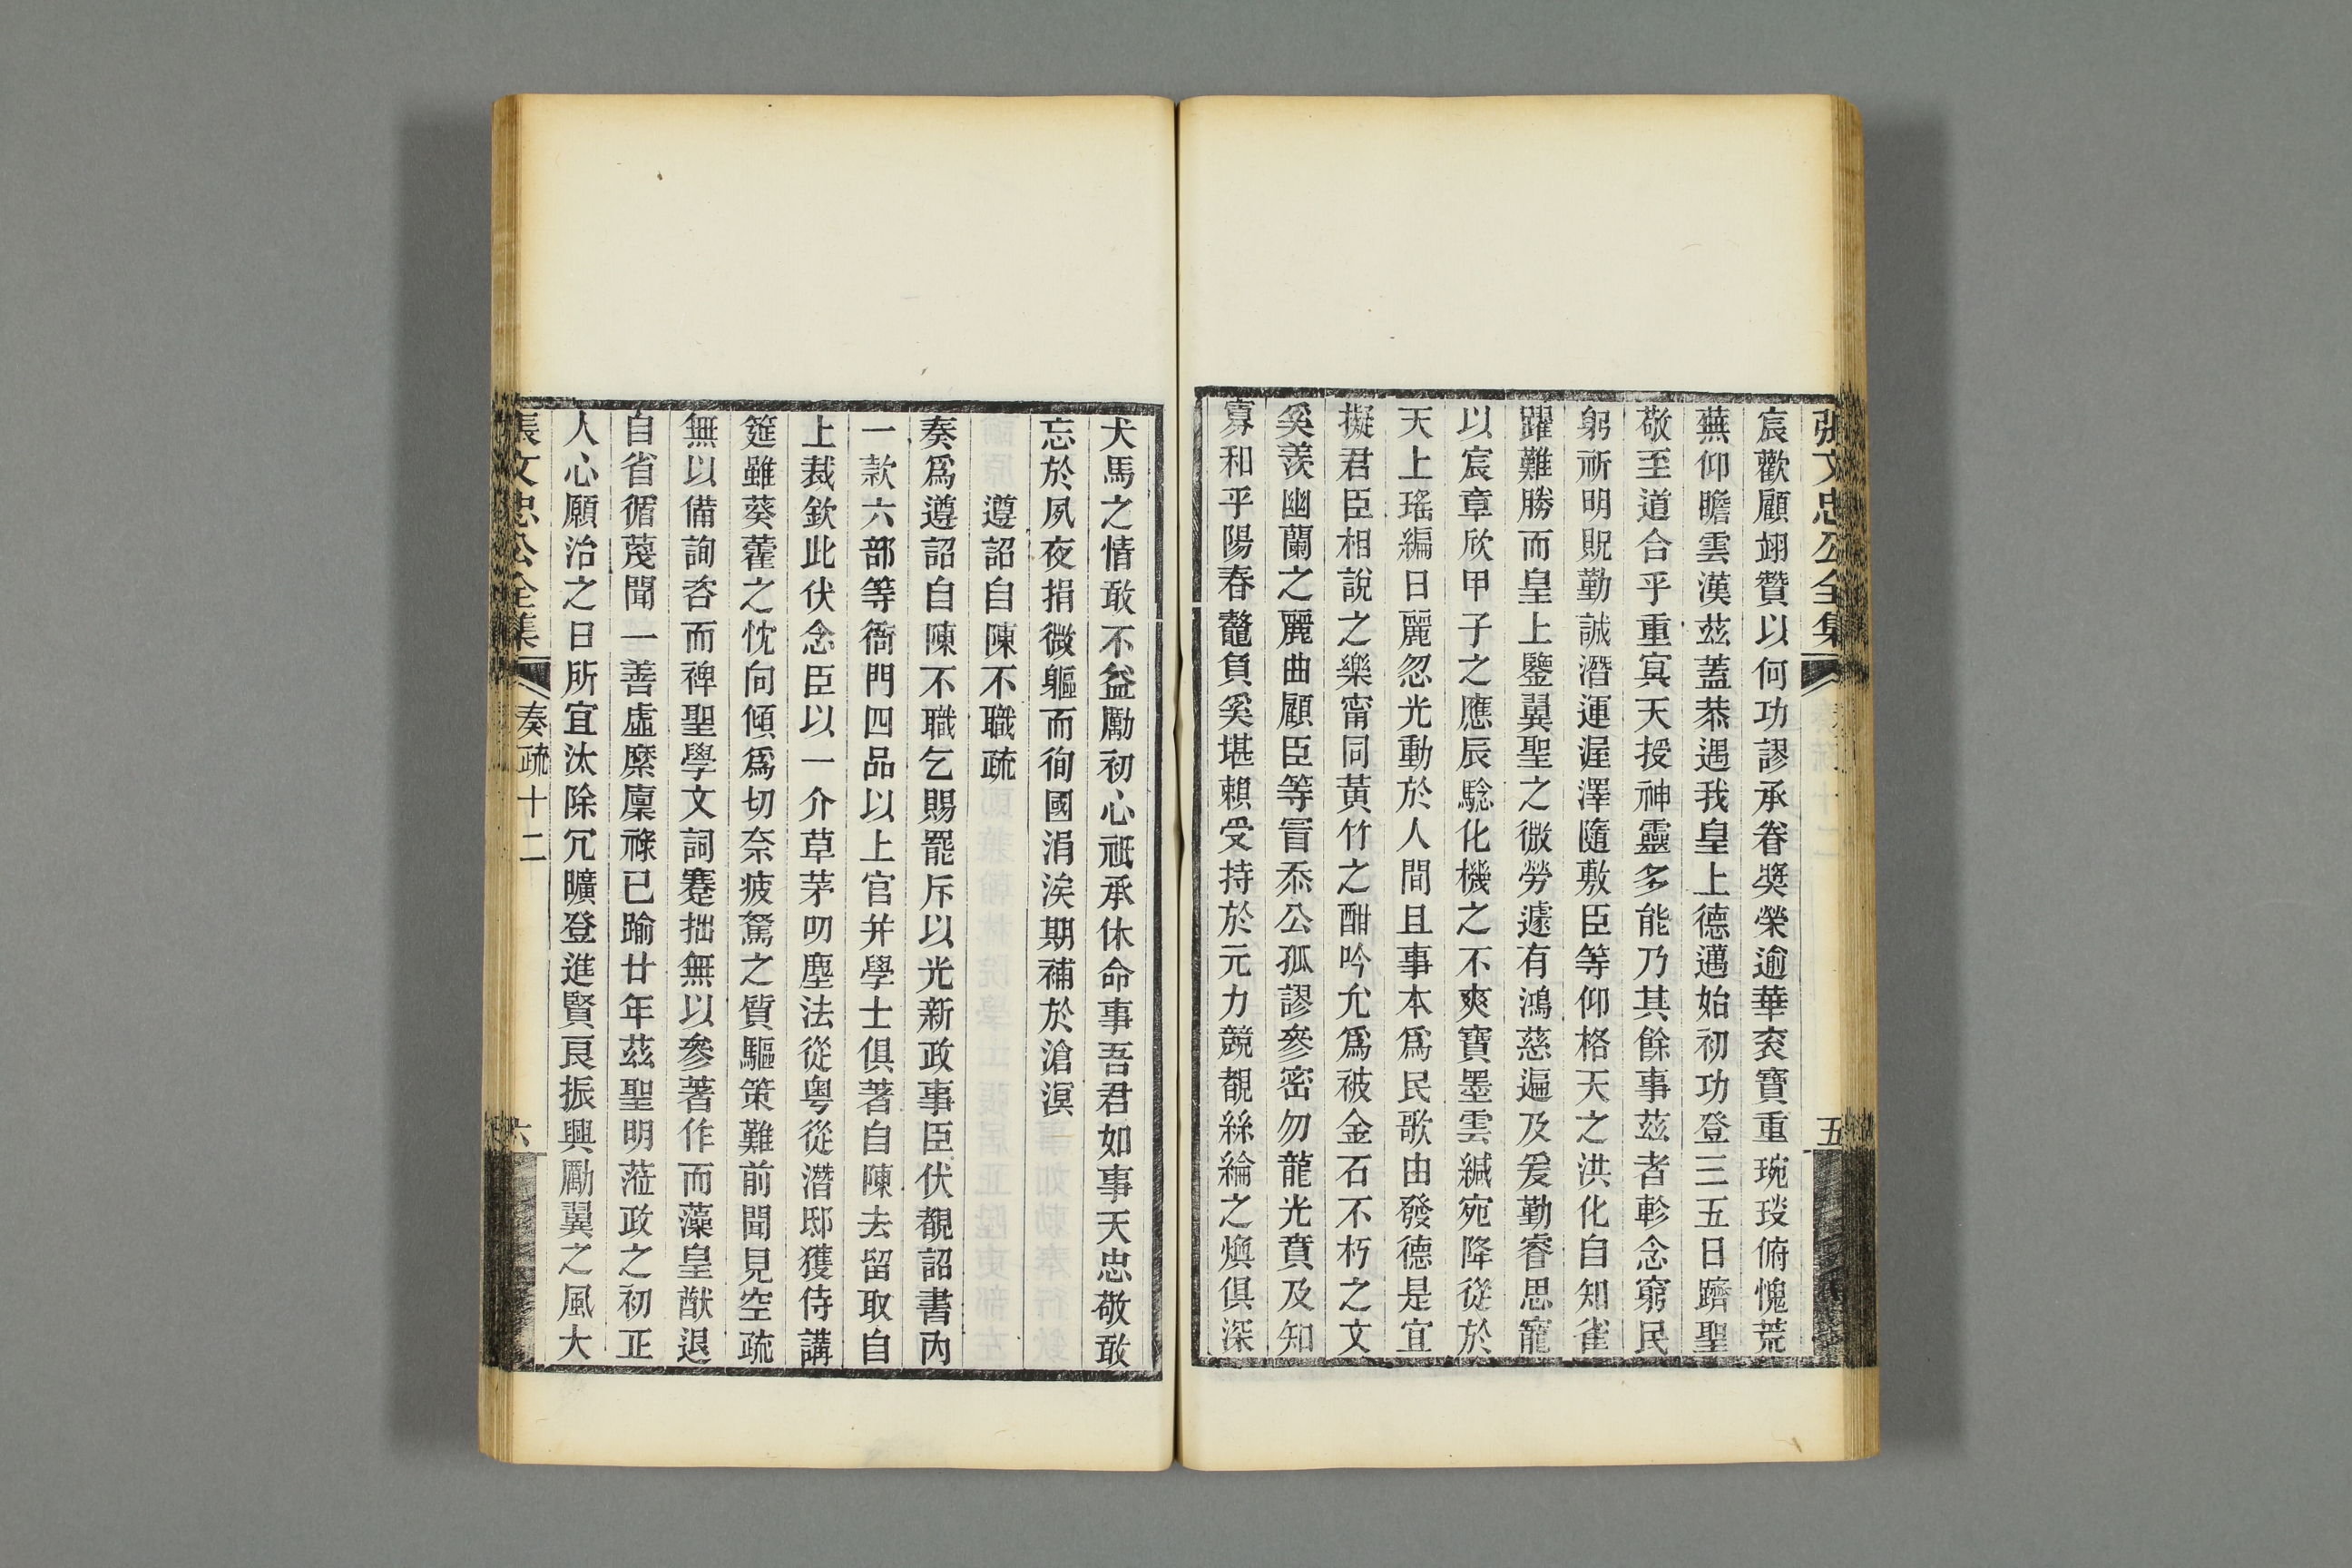 張文忠公全集
五
宸歡顧翊贊以何功謬承眷獎榮逾華袞寶重琬琰俯愧荒
蕪仰瞻雲漢茲蓋恭遇我皇上德邁始初功登三五日躋聖
敬至道合乎重寞天授神靈多能乃其餘事茲者軫念窮民
躬祈明貺勤誠潛運渥澤隨敷臣等仰格天之洪化自知雀
躍難勝而皇上鑒翼聖之微勞遽有鴻慈遍及爰勤睿思寵
以宸章欣甲子之應辰騐化機之不爽寶墨雲緘宛降從於
天上瑤編日麗忽光動於人間且事本為民歌由發德是宜
擬君臣相說之樂甯同黃竹之酣吟允為被金石不朽之文
奚羨幽蘭之麗曲顧臣等冒忝公孤謬參密勿龍光賁及知
寡和乎陽春鼇負奚堪賴受持於元力競覩絲綸之煥俱深
犬馬之情敢不益勵初心祗承休命事吾君如事天忠敬敢
忘於夙夜捐微軀而徇國涓涘期補於滄溟
遵詔自陳不職疏
奏為遵詔自陳不職乞賜罷斥以光新政事臣伏覩詔書內
一款六部等衙門四品以上官并學士俱著自陳去留取自
上裁欽此伏念臣以一介草茅叨塵法從粵從潛邸獲侍講
筵雖葵藿之忱向傾為切奈疲駑之質驅策難前聞見空疏
無以備詢咨而裨聖學文詞蹇拙無以參著作而藻皇猷退
自省循蔑聞一善虛縻廩祿已踰廿年茲聖明蒞政之初正
人心願治之日所宜汰除冗曠登進賢良振興勵翼之風大
張文忠公全集
奏疏十二
六